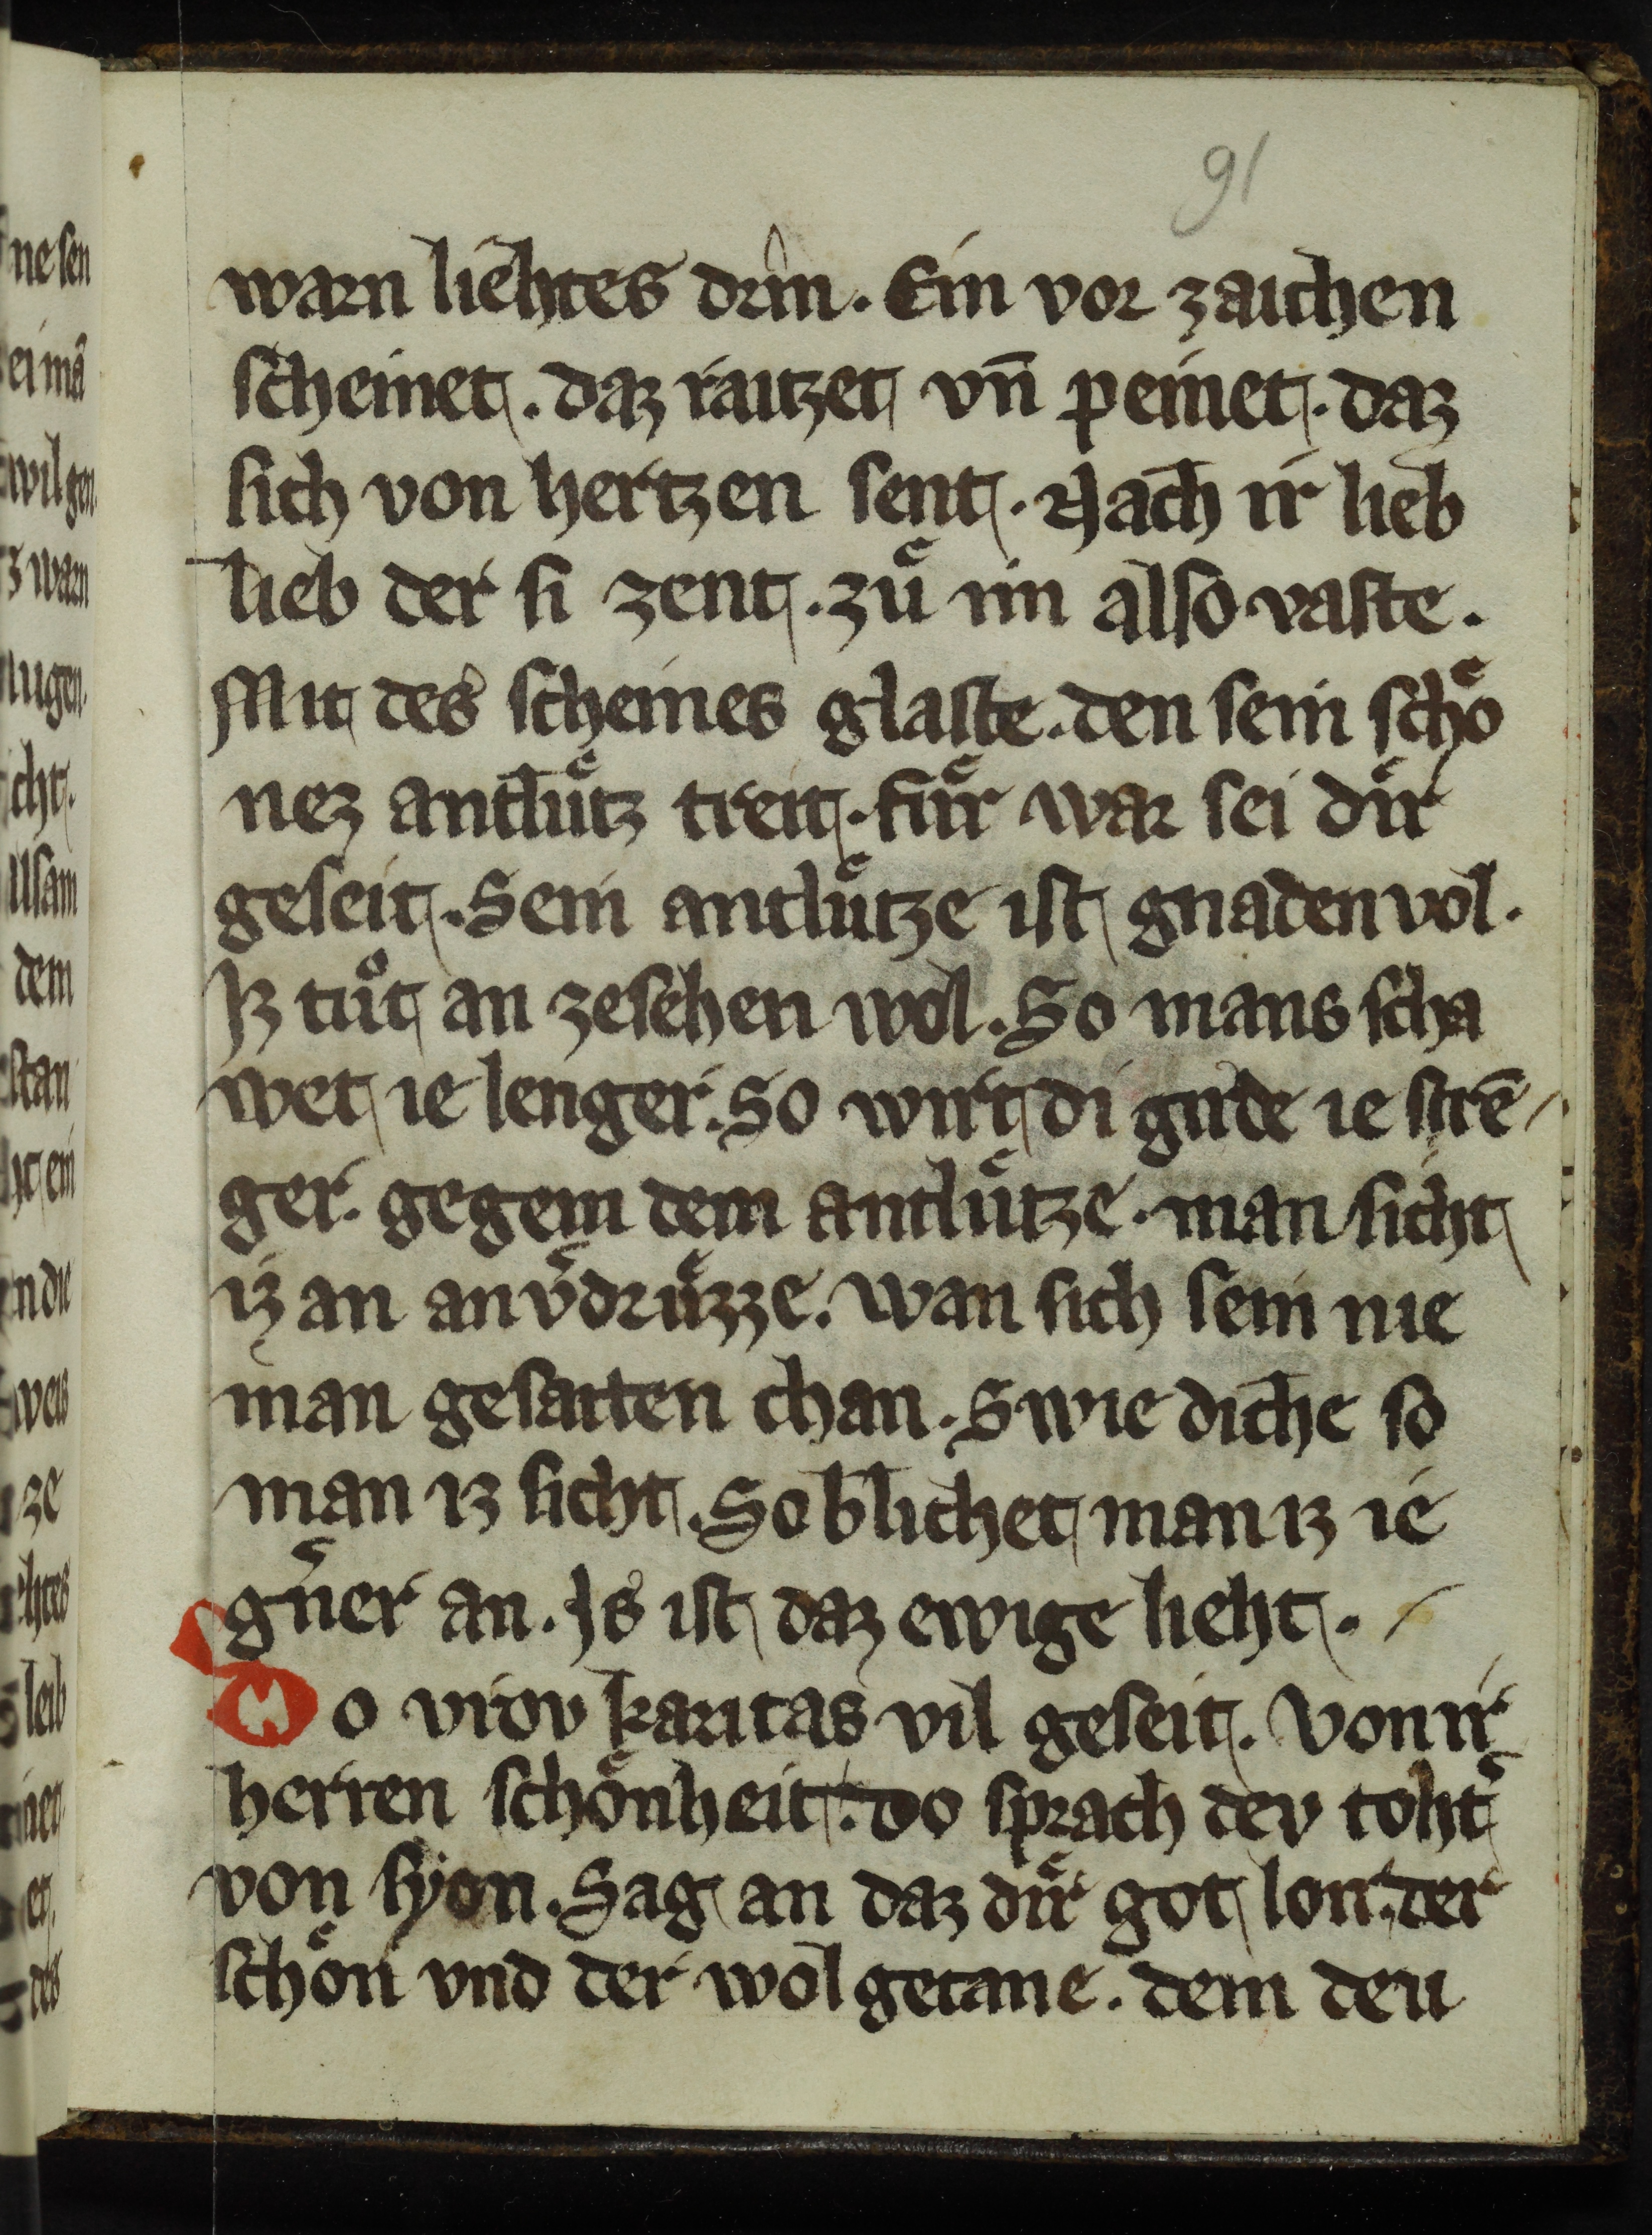 91
warn liehtes drin. Ein vor zaichen
scheinet. daz raitzet vn̄ peinet. daz
sich von hertzen sent. Nach ir lieb
lieb der si zent. zuͤ im also vaste.
Mit des scheines glaste. den sein schoͤ
nez antluͤtz treit. fuͤr war sei duͤr
geseit. Sein antluͤtze ist gnaden vol.
Iz tuͦt an zesehen wol. So mans scha
wet ie lenger. So wirt di girde ie strē
ger. gegem dem antluͤtze. man sicht
iz an an v͛druͤzze. wan sich sein nie
man gesatten chan. Swie diche so
man iz sicht. So blichet man iz ie
g͛ner an. Is ist daz ewige lieht.
Do vrov karitas vil geseit. von ir
herren schoͤnheit. do sprach dev toht͛
von syon. Sag an daz duͤr got lon. der
schoͤn vnd der wol getane. dem deu